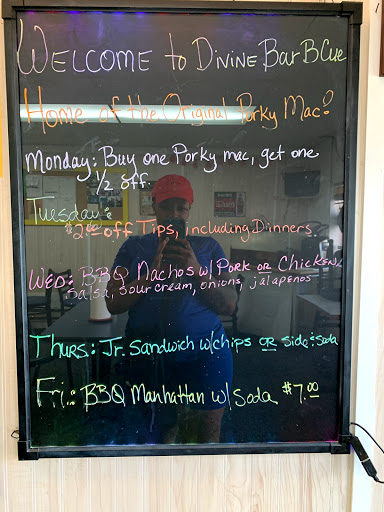 WELCOME to DIVINE Bar B Cue
Home of the Original Porky Mac!
Monday: Buy one Porky mac, get one
1/2 off.
Tuesday:
$2.00 off Tips, including Dinners
WED: BBQ Nachos w/ PORK OR Chicken,
Salsa, sour cream, onions, jalapenos
Thurs: Jr. Sandwich w/chips OR side & Soda
Fri.: BBQ Manhattan w/ Soda $7.00